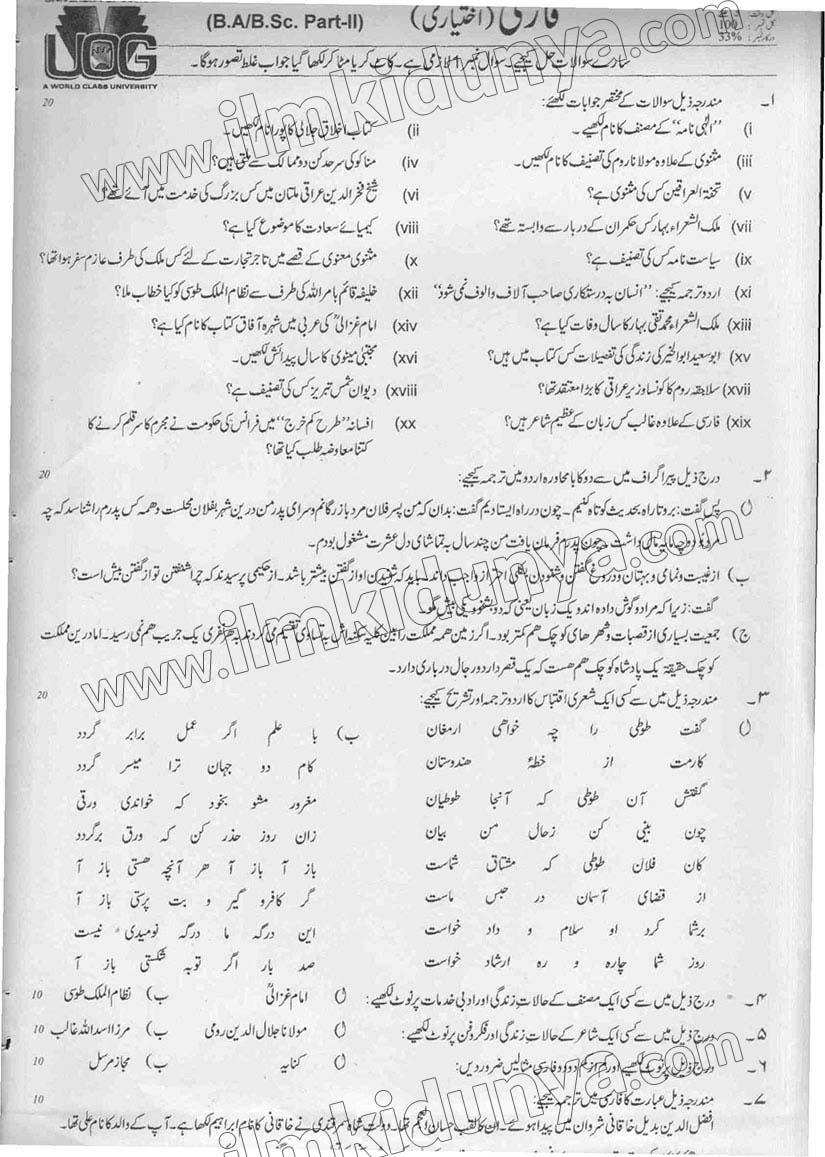 UOG
A WORLD CLASS UNIVERSITY
(B.A/B.Sc. Part-II) فارسی (اختیاری)
100
33%
سارے سوالات حل کیجیے۔ سوال نمبر 1 لازمی ہے۔ کاٹ کر یا مٹا کر لکھا گیا جواب غلط تصور ہو گا۔
۱۔ مندرجہ ذیل سوالات کے مختصر جوابات لکھئے: 20
(i) ”الٰہی نامہ“ کے مصنف کا نام لکھیے۔ (ii) کتاب اخلاق جلالی کا پورا نام لکھیں۔
(iii) مثنوی کے علاوہ مولانا روم کی تصنیف کا نام لکھیں۔ (iv) مناکو کی سرحد کن دو ممالک سے ملتی ہیں؟
(v) تحفۃ العراقین کس کی مثنوی ہے؟ (vi) شیخ فخر الدین عراقی ملتان میں کس بزرگ کی خدمت میں آئے تھے؟
(vii) ملک الشعراء بہار کس حکمران کے دربار سے وابستہ تھے؟ (viii) کیمیائے سعادت کا موضوع کیا ہے؟
(ix) سیاست نامہ کس کی تصنیف ہے؟ (x) مثنوی معنوی کے قصے میں تاجر تجارت کے لئے کس ملک کی طرف عازم سفر ہوا تھا؟
(xi) اردو ترجمہ کیجیے: ”انسان بہ درستکاری صاحب آلاف والوف نمی شود“ (xii) خلیفہ قائم بامر اللہ کی طرف سے نظام الملک طوسی کو کیا خطاب ملا؟
(xiii) ملک الشعراء محمد تقی بہار کا سال وفات کیا ہے؟ (xiv) امام غزالیؒ کی عربی میں شہرہ آفاق کتاب کا نام کیا ہے؟
(xv) ابو سعید ابو الخیر کی زندگی کی تفصیلات کس کتاب میں ہیں؟ (xvi) مجتبیٰ مینوی کا سال پیدائش لکھیں۔
(xvii) سلاجقہ روم کا کونسا وزیر عراقی کا بڑا معتقد تھا؟ (xviii) دیوان شمس تبریز کس کی تصنیف ہے؟
(xix) فارسی کے علاوہ غالب کس زبان کے عظیم شاعر ہیں؟ (xx) افسانہ ”طرح کم خرج“ میں فرانس کی حکومت نے مجرم کا سر قلم کرنے کا
کتنا معاوضہ طلب کیا تھا؟
۲۔ درج ذیل پیراگراف میں سے دو کا بامحاورہ اردو میں ترجمہ کیجیے: 20
ا) پس گفت: برو تا راہ بحدیث کوتاہ کنیم۔ چون در راہ ایستادیم گفت: بدان کہ من پسر فلان مرد بازرگانم و سرای پدر من درین شہر بفلان محلست و ہمہ کس پدرم را شناسد کہ چہ
مرد بود و چہ مایہ داشت۔ چون پدرم فرمان یافت من چند سال بہ تماشای دل عشرت مشغول بودم۔
ب) از غیبت و نمامی و بہتان و دروغ گفتن و شنودن احتراز واجب داند۔ باید کہ شنیدن او از گفتن بیشتر باشد۔ از حکیمی پرسیدند کہ چرا شنفتن تو از گفتن بیش است؟
گفت: زیرا کہ مرا دو گوش دادہ اند و یک زبان یعنی کہ دو بشنو و یکی بیش مگو۔
ج) جمعیت بسیاری از قصبات و شہر ھای کوچک ھم کمتر بود۔ اگر زمین ھمہ مملکت را بین کلیہ سکنہ اش بتساوی تقسیم می کردند بہ ھر نفری یک جریب ھم نمی رسید۔ اما درین مملکت
کوچک حقیقۃ یک پادشاہ کوچک ھم ھست کہ یک قصر دارد و رجال درباری دارد۔
۳۔ مندرجہ ذیل میں سے کسی ایک شعری اقتباس کا اردو ترجمہ اور تشریح کیجیے: 20
ا) گفت طوطی را چہ خواھی ارمغان ب) با علم اگر عمل برابر گردد
کارمت از خطۂ ھندوستان کام دو جہان ترا میسر گردد
گفتش آن طوطی کہ آنجا طوطیان مغرور مشو بخود کہ خواندی ورقی
چون بینی کن زحال من بیان زان روز حذر کن کہ ورق برگردد
کان فلان طوطی کہ مشتاق شماست باز آ باز آ ھر آنچہ ھستی باز آ
از قضای آسمان در حبس ماست گر کافر و گبر و بت پرستی باز آ
برشما کرد او سلام و داد خواست این درگہ ما درگہ نومیدی نیست
روز شما چارہ و رہ ارشاد خواست صد بار اگر توبہ شکستی باز آ
۴۔ درج ذیل میں سے کسی ایک مصنف کے حالات زندگی اور ادبی خدمات پر نوٹ لکھیے: ا) امام غزالیؒ ب) نظام الملک طوسی 10
۵۔ درج ذیل میں سے کسی ایک شاعر کے حالات زندگی اور فکر و فن پر نوٹ لکھیے: ا) مولانا جلال الدین رومی ب) مرزا اسد اللہ غالب 10
۶۔ درج ذیل پر نوٹ لکھیے اور کم از کم دو دو فارسی مثالیں ضرور دیں: ا) کنایہ ب) مجاز مرسل 10
۷۔ مندرجہ ذیل عبارت کا فارسی میں ترجمہ کیجیے: 10
افضل الدین بدیل خاقانی شروان میں پیدا ہوئے۔ ان کا لقب حسان العجم تھا۔ دولت شاہ سمرقندی نے خاقانی کا نام ابراہیم لکھا ہے۔ آپ کے والد کا نام علی تھا۔
www.ilmkidunya.com
www.ilmkidunya.com
www.ilmkidunya.com
www.ilmkidunya.com